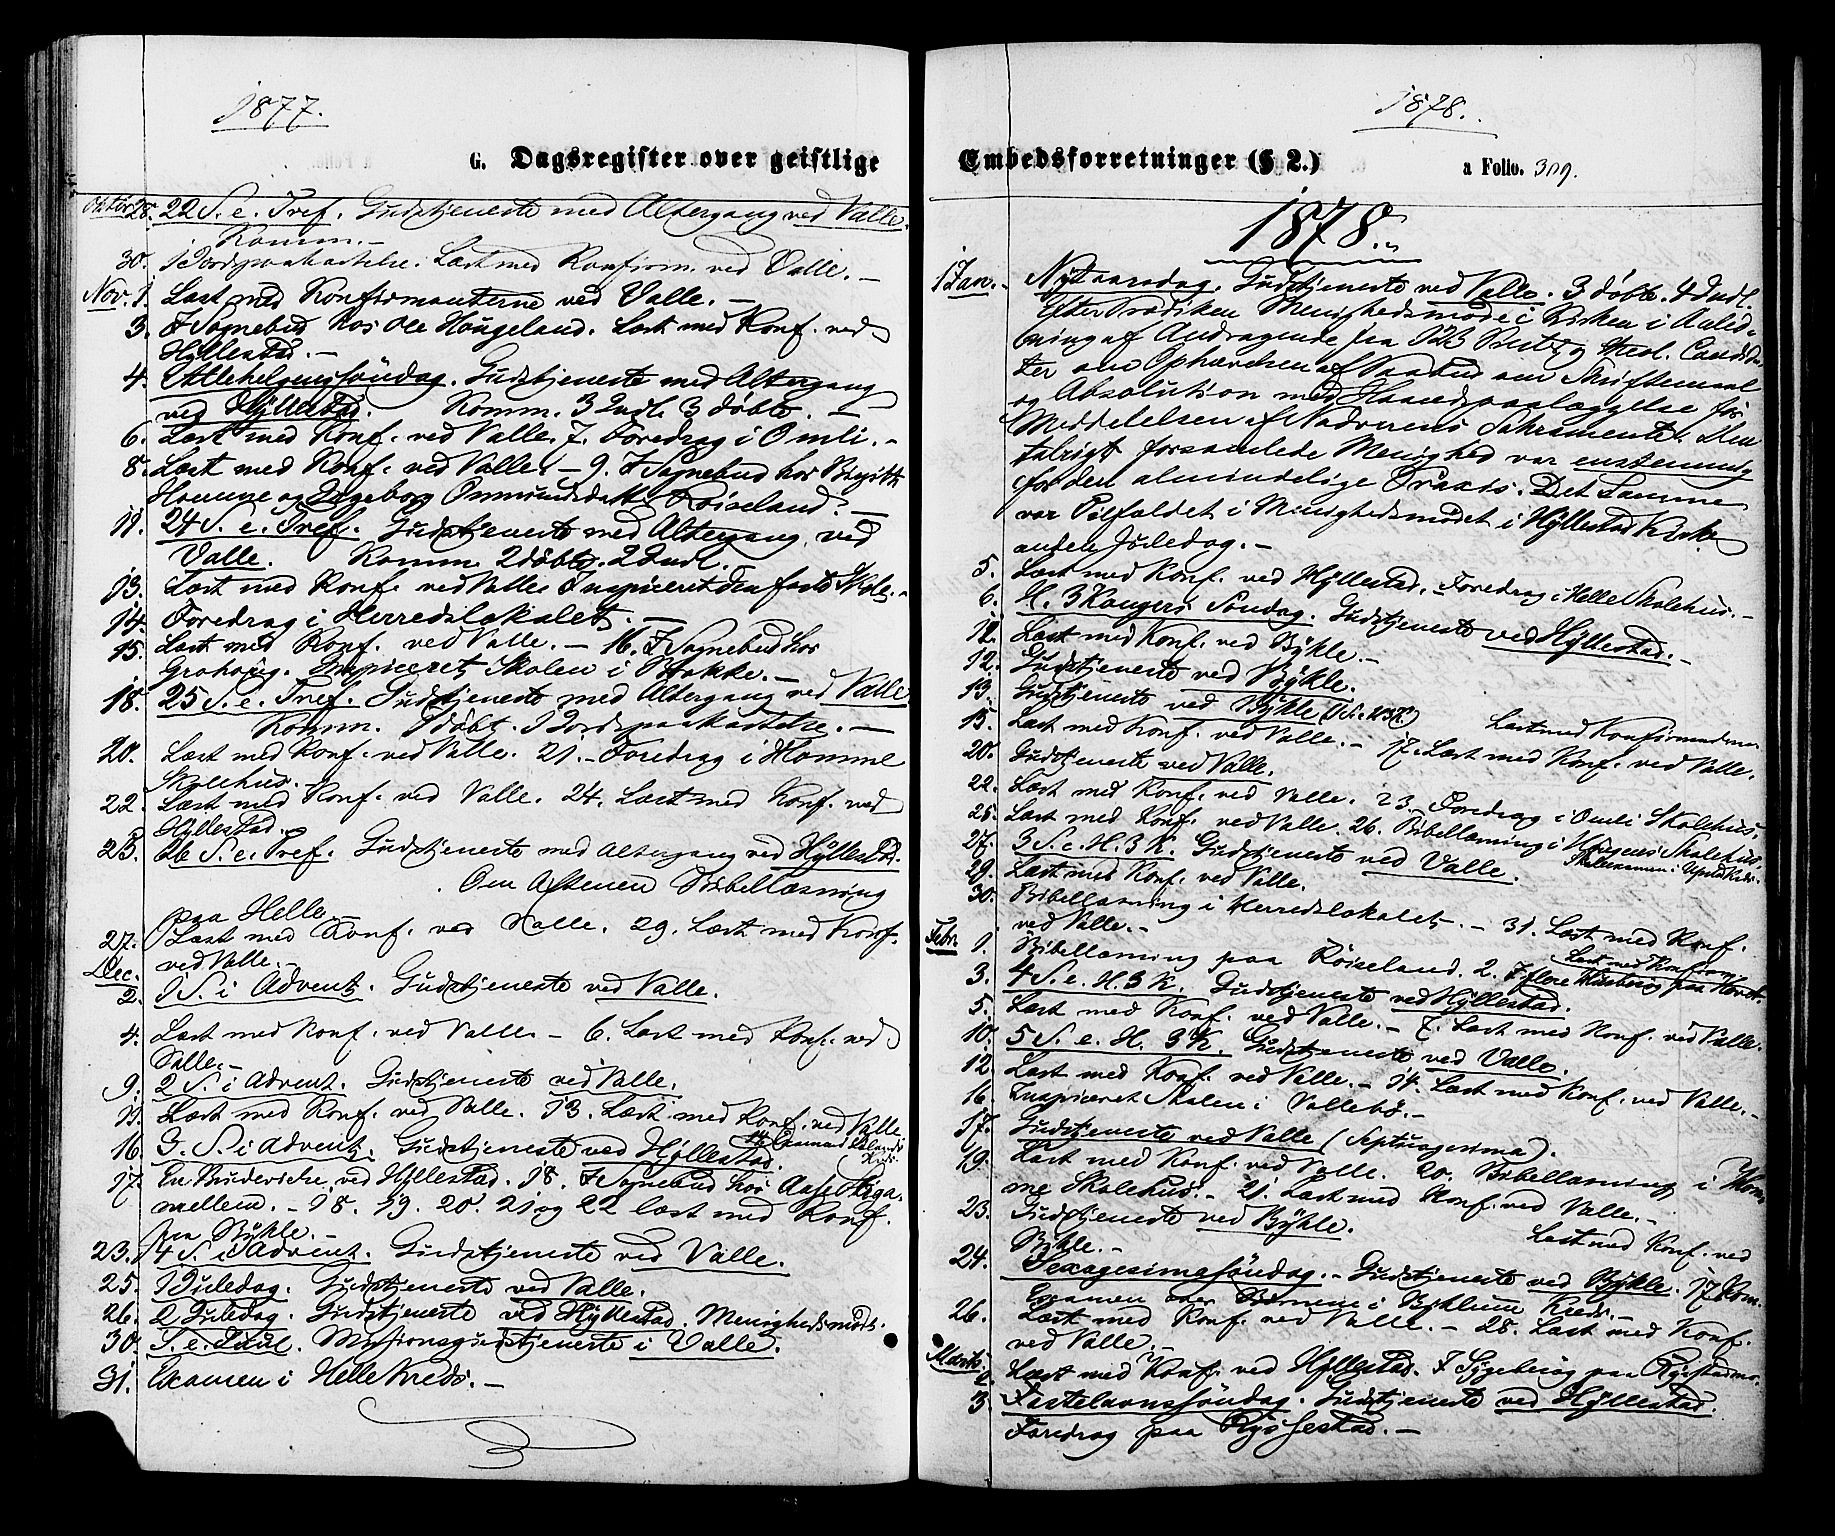 1877.
G. Dagsregister over geistlige
Oktbr 28. 22 S. e. Tref. Gudstjeneste med Altergang ved Valle.
Komm. –
30. 1 Jordspaakastelse. Læst med Konfirm. ved Valle. –
Nov. 1. Læst med Konfirmanterne ved Valle. –
3. I Sognebud hos Ole Haugeland. Læst med Konf. ved
Hyllestad. –
4. Allehelgenssöndag. Gudstjeneste med Altergang
ved Hyllestad. Komm. 3 Indl. 3 döbte. –
6. Læst med Konf. ved Valle. 7. Foredrag i Omli. –
8. Læst med Konf. ved Valle. – 9. I Sognebud hos Birgitte
Homme og Ingeborg Omundsdatter Röiseland. –
11. 24 S. e. Tref. Gudstjeneste med Altergang ved
Valle. Komm. 2 döbte. 2 Indl.
13. Læst med Konf. ved Valle Inspiceret den faste Skole. –
14. Foredrag i Herredslokalet. –
15. Læst med Konf. ved Valle. – 16. I Sognebud hos
Inspiceret Skolen i –
18. 25 S. e. Tref. Gudstjeneste med Altergang ved Valle
Komm. 1 döbt. 1 Jordspaakastelse. –
20. Læst med Konf. ved Valle. 21. – Foredrag i Homme
Skolehus. –
22. Læst med Konf. ved Valle. 24. Læst med Konf. ved
Hyllestad.
25. 26 S. e. Tref. Gudstjeneste med Altergang ved Hyllestad.
Om Aftenen Bibellæsning
paa Helle. –
27. Læst med Konf. ved Valle. 29. Læst med Konf.
ved Valle. –
Dec. 2. 1 S. i Advent. Gudstjeneste ved Valle.
4. Læst med Konf. ved Valle – 6. Læst med Konf. ved
Valle. –
9. 2 S. i Advent. Gudstjeneste ved Valle.
11. Læst med Konf. ved Valle. 13. Læst med Konf. ved Valle
16. 3. S. i Advent. Gudstjeneste ved Hyllestad.
17. En Brudevielse ved Hyllestad. 18. I Sognebud hos Aase
– 18. 19. 20. 21 og 22 læst med Konf.
fra Bykle. –
23. 4 S. i Advent. Gudstjeneste ved Valle.
25. 1 Juledag. Gudstjeneste ved Valle.
26. 2 Juledag. Gudstjeneste ved Hyllestad. Menighedsmöde.
30. S. e. Juul. Missionsgudstjeneste i Valle.
31. Examen i Helle Kreds. –
1878.
Embedsforretninger (§ 2.) a Folio. 309.
1878.
1 Jan. – Nytaarsdag. Gudstjeneste ved Valle. 3 döbte. 4 Indl.
Efter Prædiken Menighedsmöde i Kirken i Anled-
ning af Andragende fra 123 Præster og theol. Candida-
ter om Ophævelsen af Vaabud om Skriftemaal
og Absolution med Haandspaalæggelse för
Meddelelsen af Nadverens Sakramente. Den
talrigt forsamlede Menighed var enstemmig
for den almindelige Praxis. Det samme
var Tilfældet i Menighedsmödet i Hyllestad Kirke
anden Juledag. –
5. Læst med Konf. ved Hyllestad. Foredrag i Helle Skolehus. –
6. H. 3 Kongers Söndag. Gudstjeneste ved Hyllestad. –
12. Læst med Konf. ved Bykle. –
12. Gudstjeneste ved Bykle.
13. Gudstjeneste ved Bykle Læst med Konfirmanderne
15. Læst med Konf. ved Valle. – 17. Læst med Konf. ved Valle.
20. Gudstjeneste ved Valle.
22. Læst med Konf. ved Valle. 23. – Foredrag i Omli Skolehus.
25. Læst med Konf. ved Valle. 26. Bibellæsning i Skolehus.
27. 3 S. e. H. 3 K. Gudstjeneste ved Valle.
29. Læst med Konf. ved Valle.
30. Bibellæsning i Herredslokalet. – 31. Læst med Konf.
ved Valle. –
Febr. 1. Bibellæsning paa Röiseland. 2. Læst med Konfirm.
3. 4 S. e. H. 3 K. Gudstjeneste ved Hyllestad.
5. Læst med Konf. ved Valle. – 7. Læst med Konf. ved Valle.
10. 5 S. e. H. 3 K. Gudstjeneste ved Valle.
12. Læst med Konf. ved Valle. – 14. Læst med Konf. ved Valle. –
16. Inspiceret Skolen i Vallebö. –
17. Gudstjeneste ved Valle (Septuagesima).
19. Læst med Konf. ved Valle. 20. Bibellæsning i Hom-
me Skolehus. – 21. Læst med Konf. ved Valle. –
23. Gudstjeneste ved Bykle. Læst med Konf. ved
Bykle. –
24. Sexagesimasöndag. – Gudstjeneste ved Bykle. 17 Kom.
Examen over Börnene i Bykle Kreds. –
26. Læst med Konf. ved Valle. – 28. Læst med Konf.
ved Valle. –
Marts. 2. Læst med Konf. ved Hyllestad. I Sygebesög paa Rysstadmo.
3 Fastelavnssöndag. Gudstjeneste ved Hyllestad.
Foredrag paa Ryssestad. –